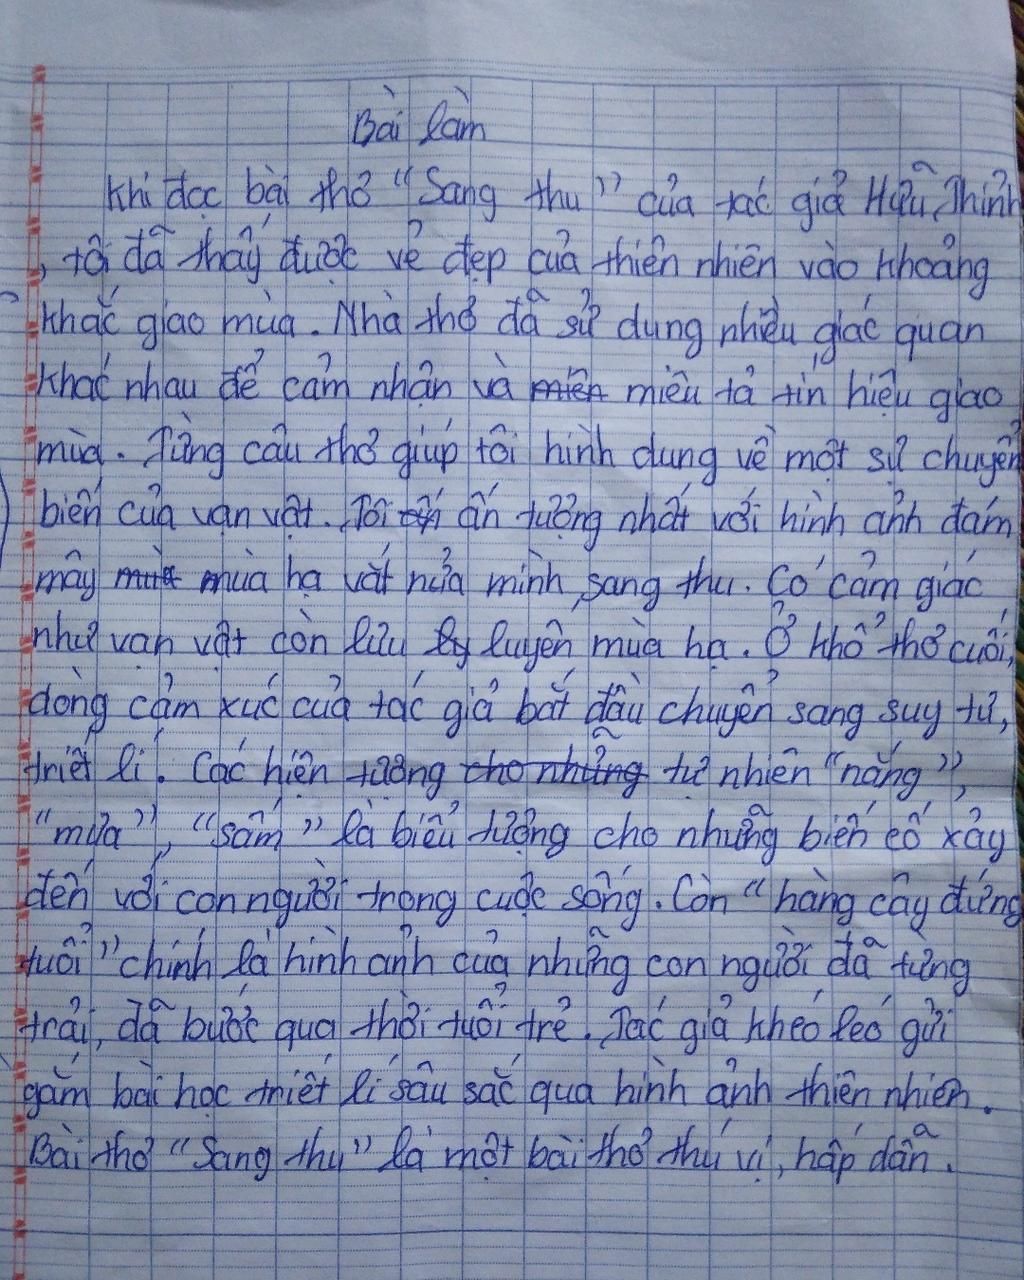 Bài làm
Khi đọc bài thơ “Sang thu” của tác giả Hữu Thỉnh
, tôi đã thấy được vẻ đẹp của thiên nhiên vào khoảng
khắc giao mùa. Nhà thơ đã sử dung nhiều giác quan
khác nhau để cảm nhận và miên miêu tả tín hiệu giao
mùa. Từng câu thơ giúp tôi hình dung về một sự chuyển
biến của vạn vật. Tôi ấn tượng nhất với hình ảnh đám
mây mùa mùa hạ vắt nửa mình sang thu. Có cảm giác
như vạn vật còn lưu ly luyến mùa hạ. Ở khổ thơ cuối,
dòng cảm xúc của tác giả bắt đầu chuyển sang suy tư,
triết lí. Các hiện tượng cho những tự nhiên “nắng”,
“mưa”, “sấm” là biểu tượng cho những biến cố xảy
đến với con người trong cuộc sống. Còn “hàng cây đứng
tuổi” chính là hình ảnh của những con người đã từng
trải, đã bước qua thời tuổi trẻ. Tác giả khéo léo gửi
gắm bài học triết lí sâu sắc qua hình ảnh thiên nhiên.
Bài thơ “Sang thu” là một bài thơ thú vị, hấp dẫn.